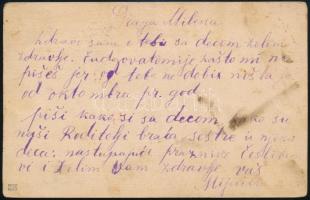 Draga Milena
zdravo sam i tebi sa decom želim
zdravlje. Čudgovatemije kašto mi ne
pišeš pr. tebe ne dobix ništa
od oktombra pr. god
piši kako si sa decom kako su
naši roditelji braća, sestre i njina
deca: nastupajući praznici čestita
vi i želim Vam zdravlje vaš